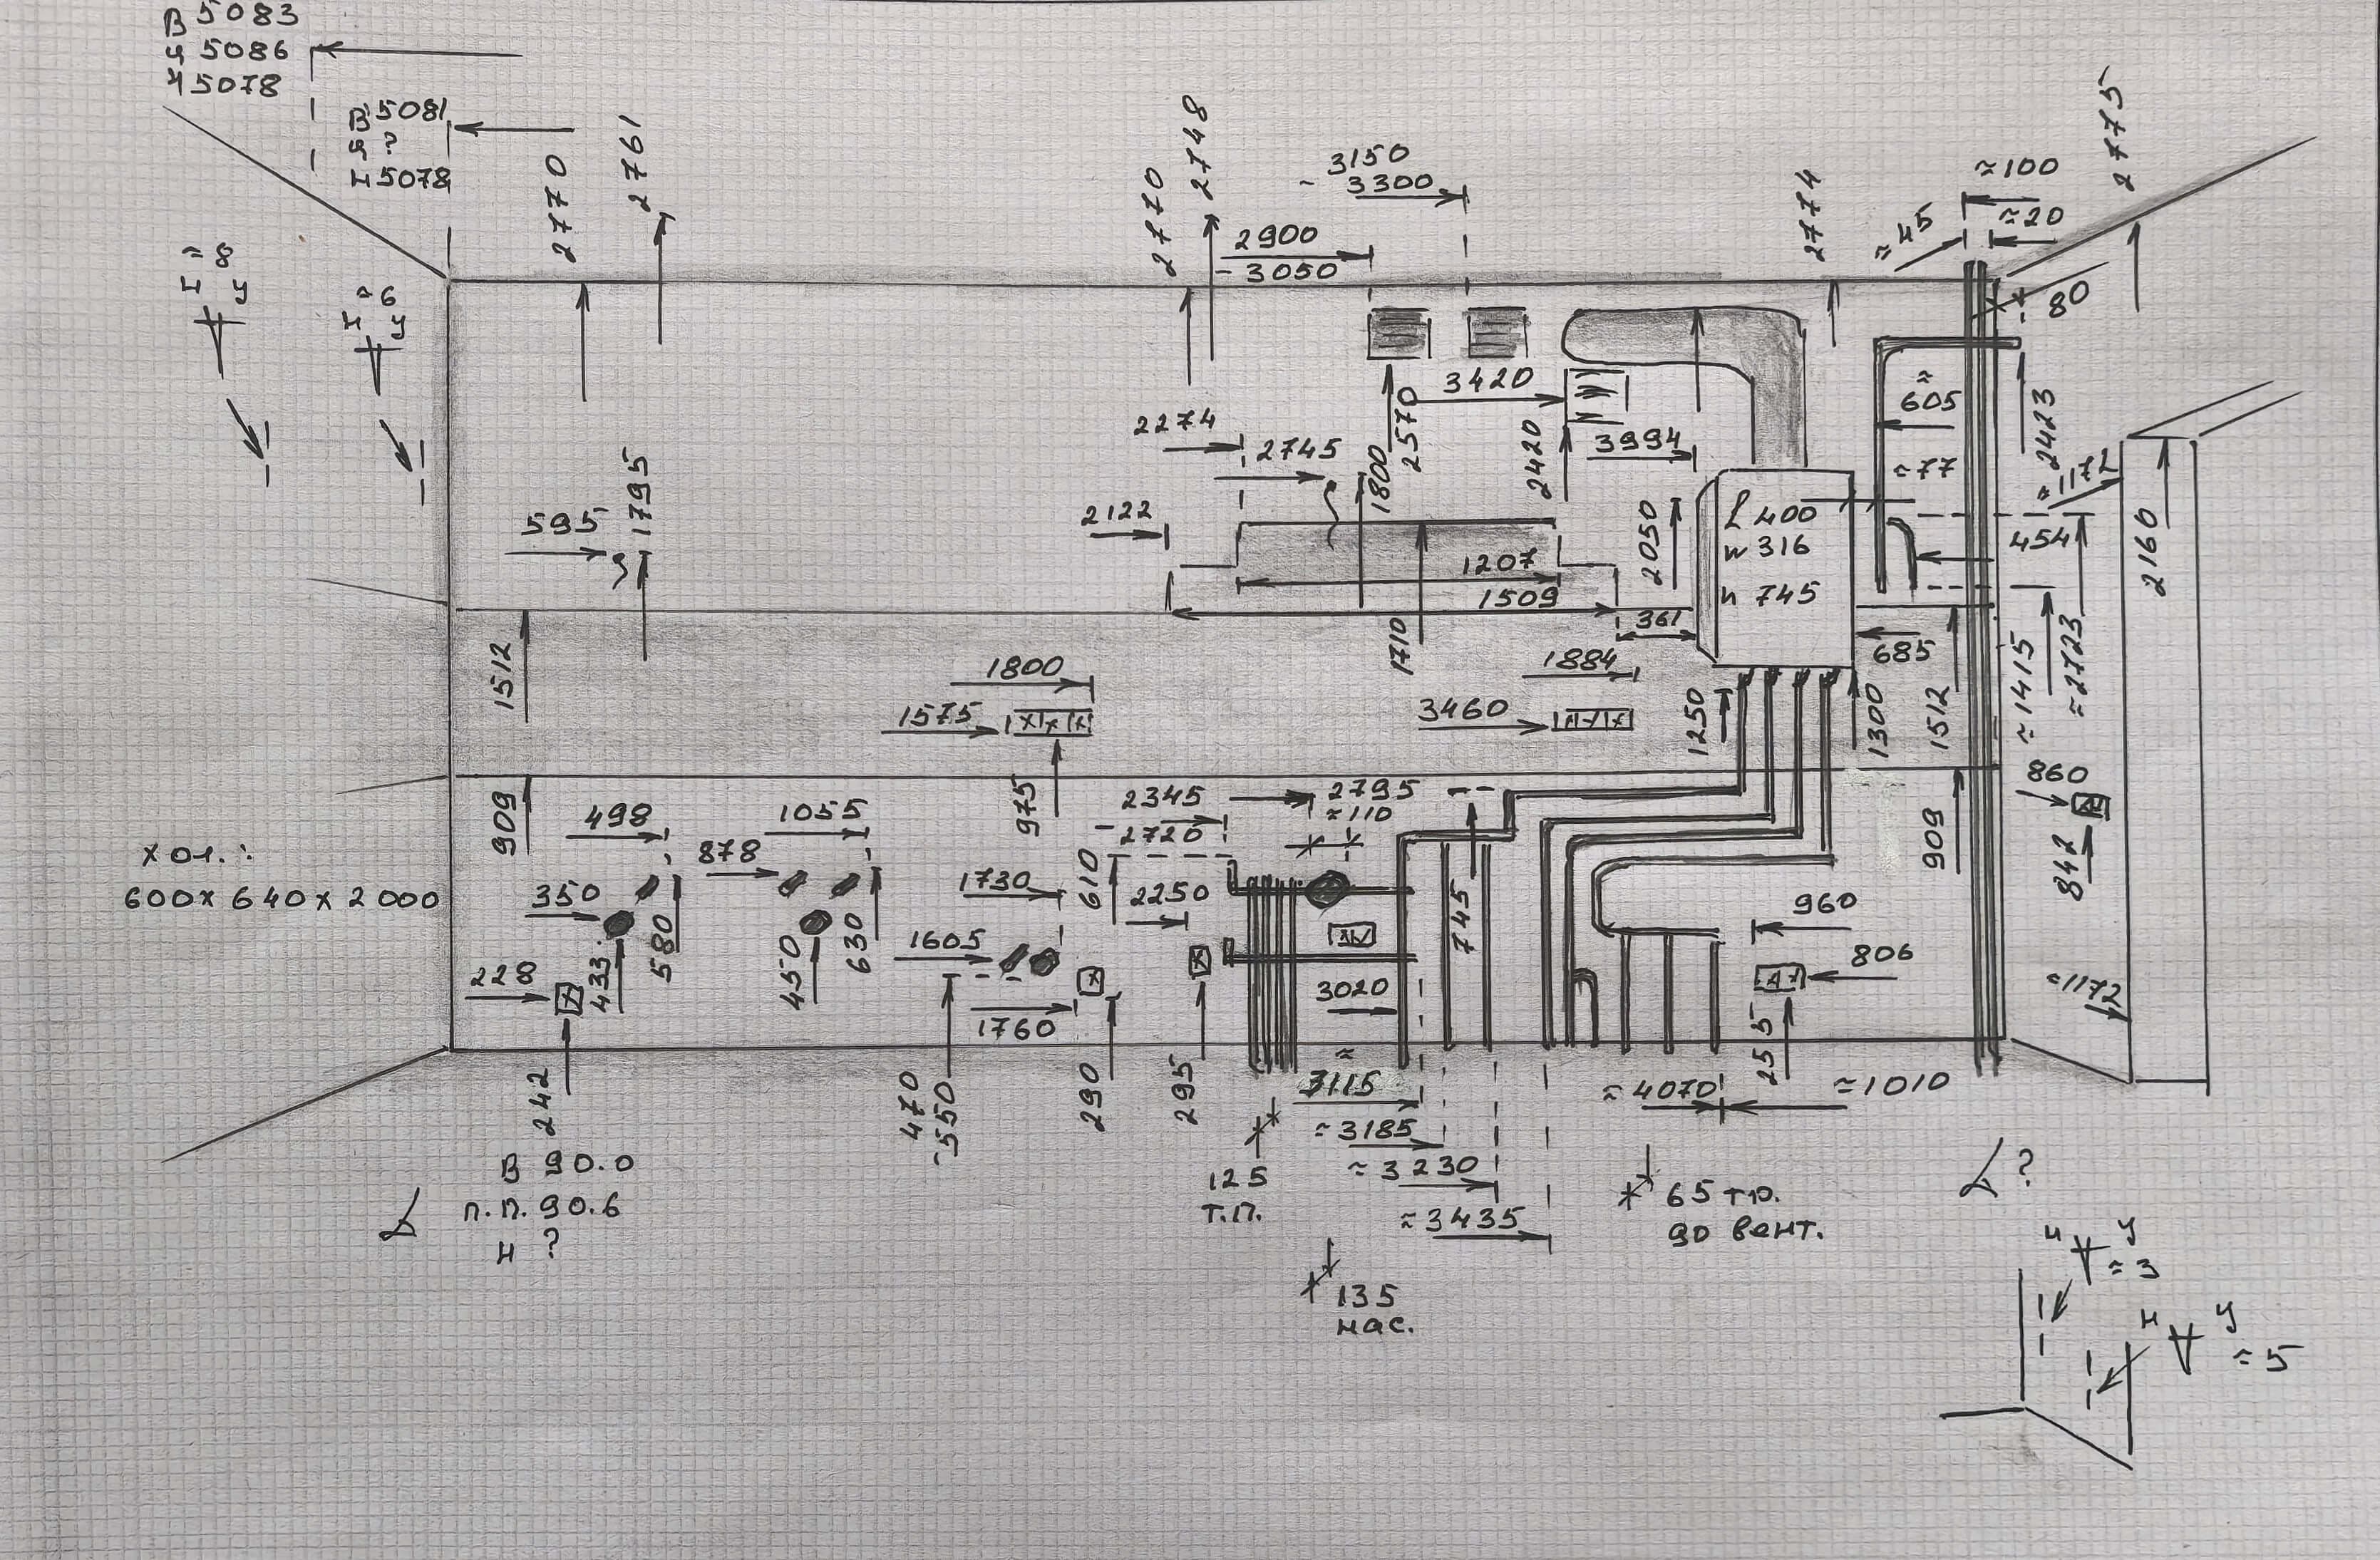 В 5083
Ч 5086
Н 5078
В 5081
Я ?
Н 5078
2770
2761
2770
2748
3150
- 3300
2900
- 3050
2774
≈100
≈20
2775
≈ 8
≈6
80
2274
2745
3420
2570
1800
2420
3994
≈
605
≈77
2423
≈1172
595
1795
2122
2050
L 400
w 316
h 745
454
2160
1207
1509
361
1710
1512
1800
1884
685
1575
3460
1250
1300
1512
≈1415
≈2723
909
498
1055
975
2345
- 2720
2795
≈110
909
860
842
хол.:
600х 640 х 2 000
878
350
580
1730
610
2250
745
960
433
450
630
1605
228
1760
3020
806
≈1172
242
470
-550
290
295
≈
3115
255
≈4070
≈1010
≈3185
В 90.0
п.п. 90.6
Н ?
125
т.п.
≈3 230
≈3435
65 тр.
90 вент.
?
135
нас.
≈ 3
≈ 5